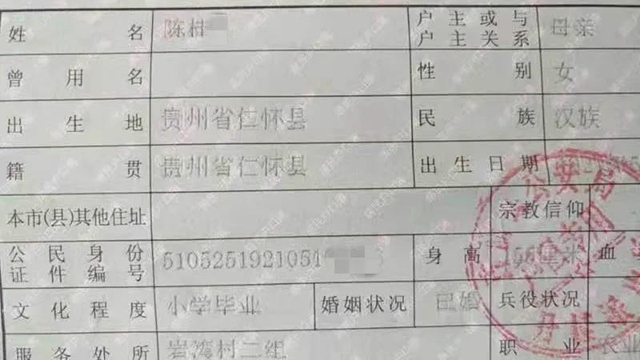 姓 名 陈柑 户主或与户主关系 母亲
曾用名 性 别 女
出生地 贵州省仁怀县 民 族 汉族
籍 贯 贵州省仁怀县 出生日期
本市(县)其他住址 宗教信仰
公民身份证件编号 5105251921051 身 高 血
文化程度 小学毕业 婚姻状况 已婚 兵役状况
服务处所 岩湾村二组 职 业 农业
公安局